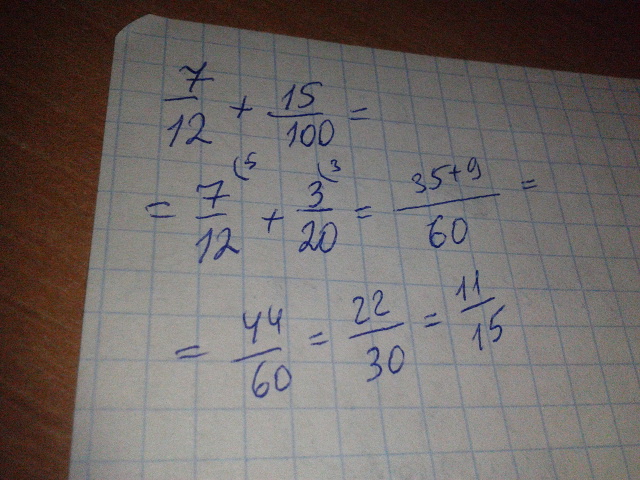 7/12 + 15/100 =
= 7/12 (5 + 3/20 (3 = 35+9/60 =
= 44/60 = 22/30 = 11/15